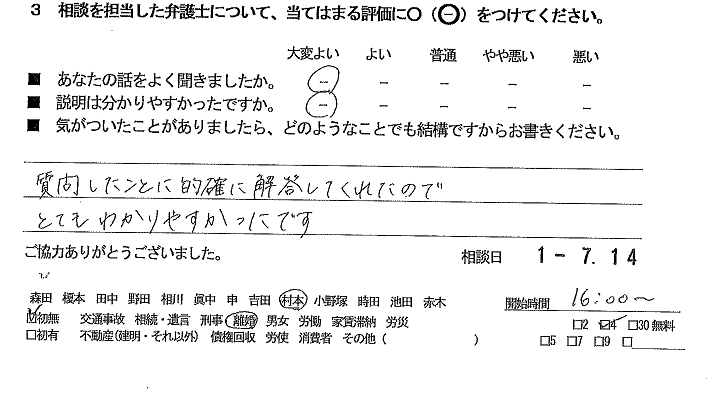 3 相談を担当した弁護士について、当てはまる評価に〇（㊀）をつけてください。
大変よい よい 普通 やや悪い 悪い
■ あなたの話をよく聞きましたか。 － － － － －
■ 説明は分かりやすかったですか。 － － － － －
■ 気がついたことがありましたら、どのようなことでも結構ですからお書きください。
質問したことに的確に解答してくれたので
とてもわかりやすかったです
ご協力ありがとうございました。 相談日 1－7.14
森田 榎本 田中 野田 相川 眞中 申 吉田 村本 小野塚 時田 池田 赤木 開始時間 16:00～
☑初無 交通事故 相続・遺言 刑事 離婚 男女 労働 家賃滞納 労災 □2 ☑4 □30無料
□初有 不動産（建明・それ以外） 債権回収 労使 消費者 その他（ ） □5 □7 □9 □